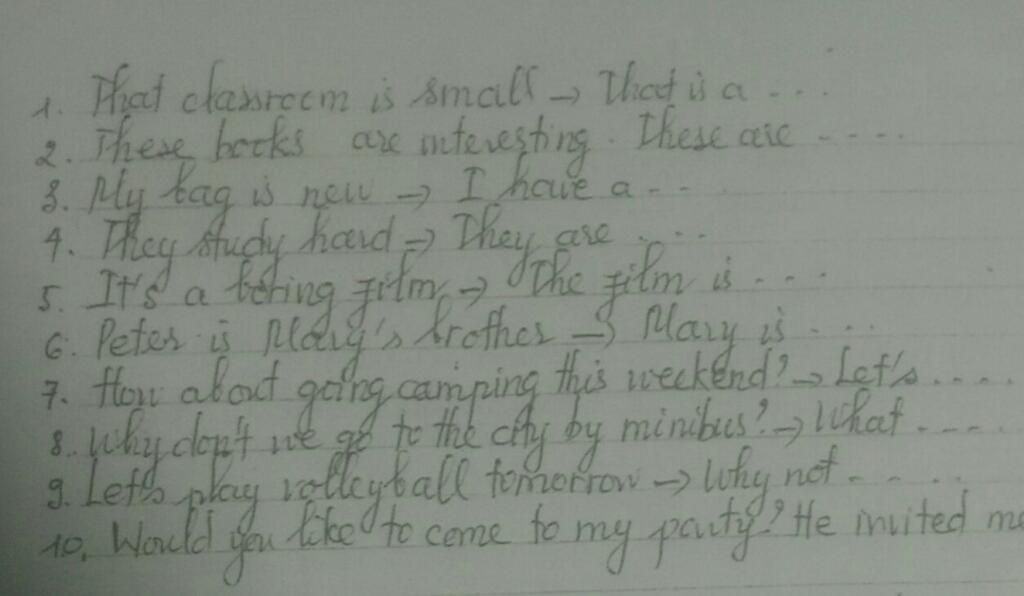 1. That classroom is small → That is a ...
2. These books are interesting. These are ....
3. My bag is new → I have a ...
4. They study hard → They are ....
5. It's a boring film → The film is ...
6. Peter is Mary's brother → Mary is ...
7. How about going camping this weekend? → Let's ....
8. Why don't we go to the city by minibus? → What ....
9. Let's play volleyball tomorrow → Why not .....
10. Would you like to come to my party? He invited me